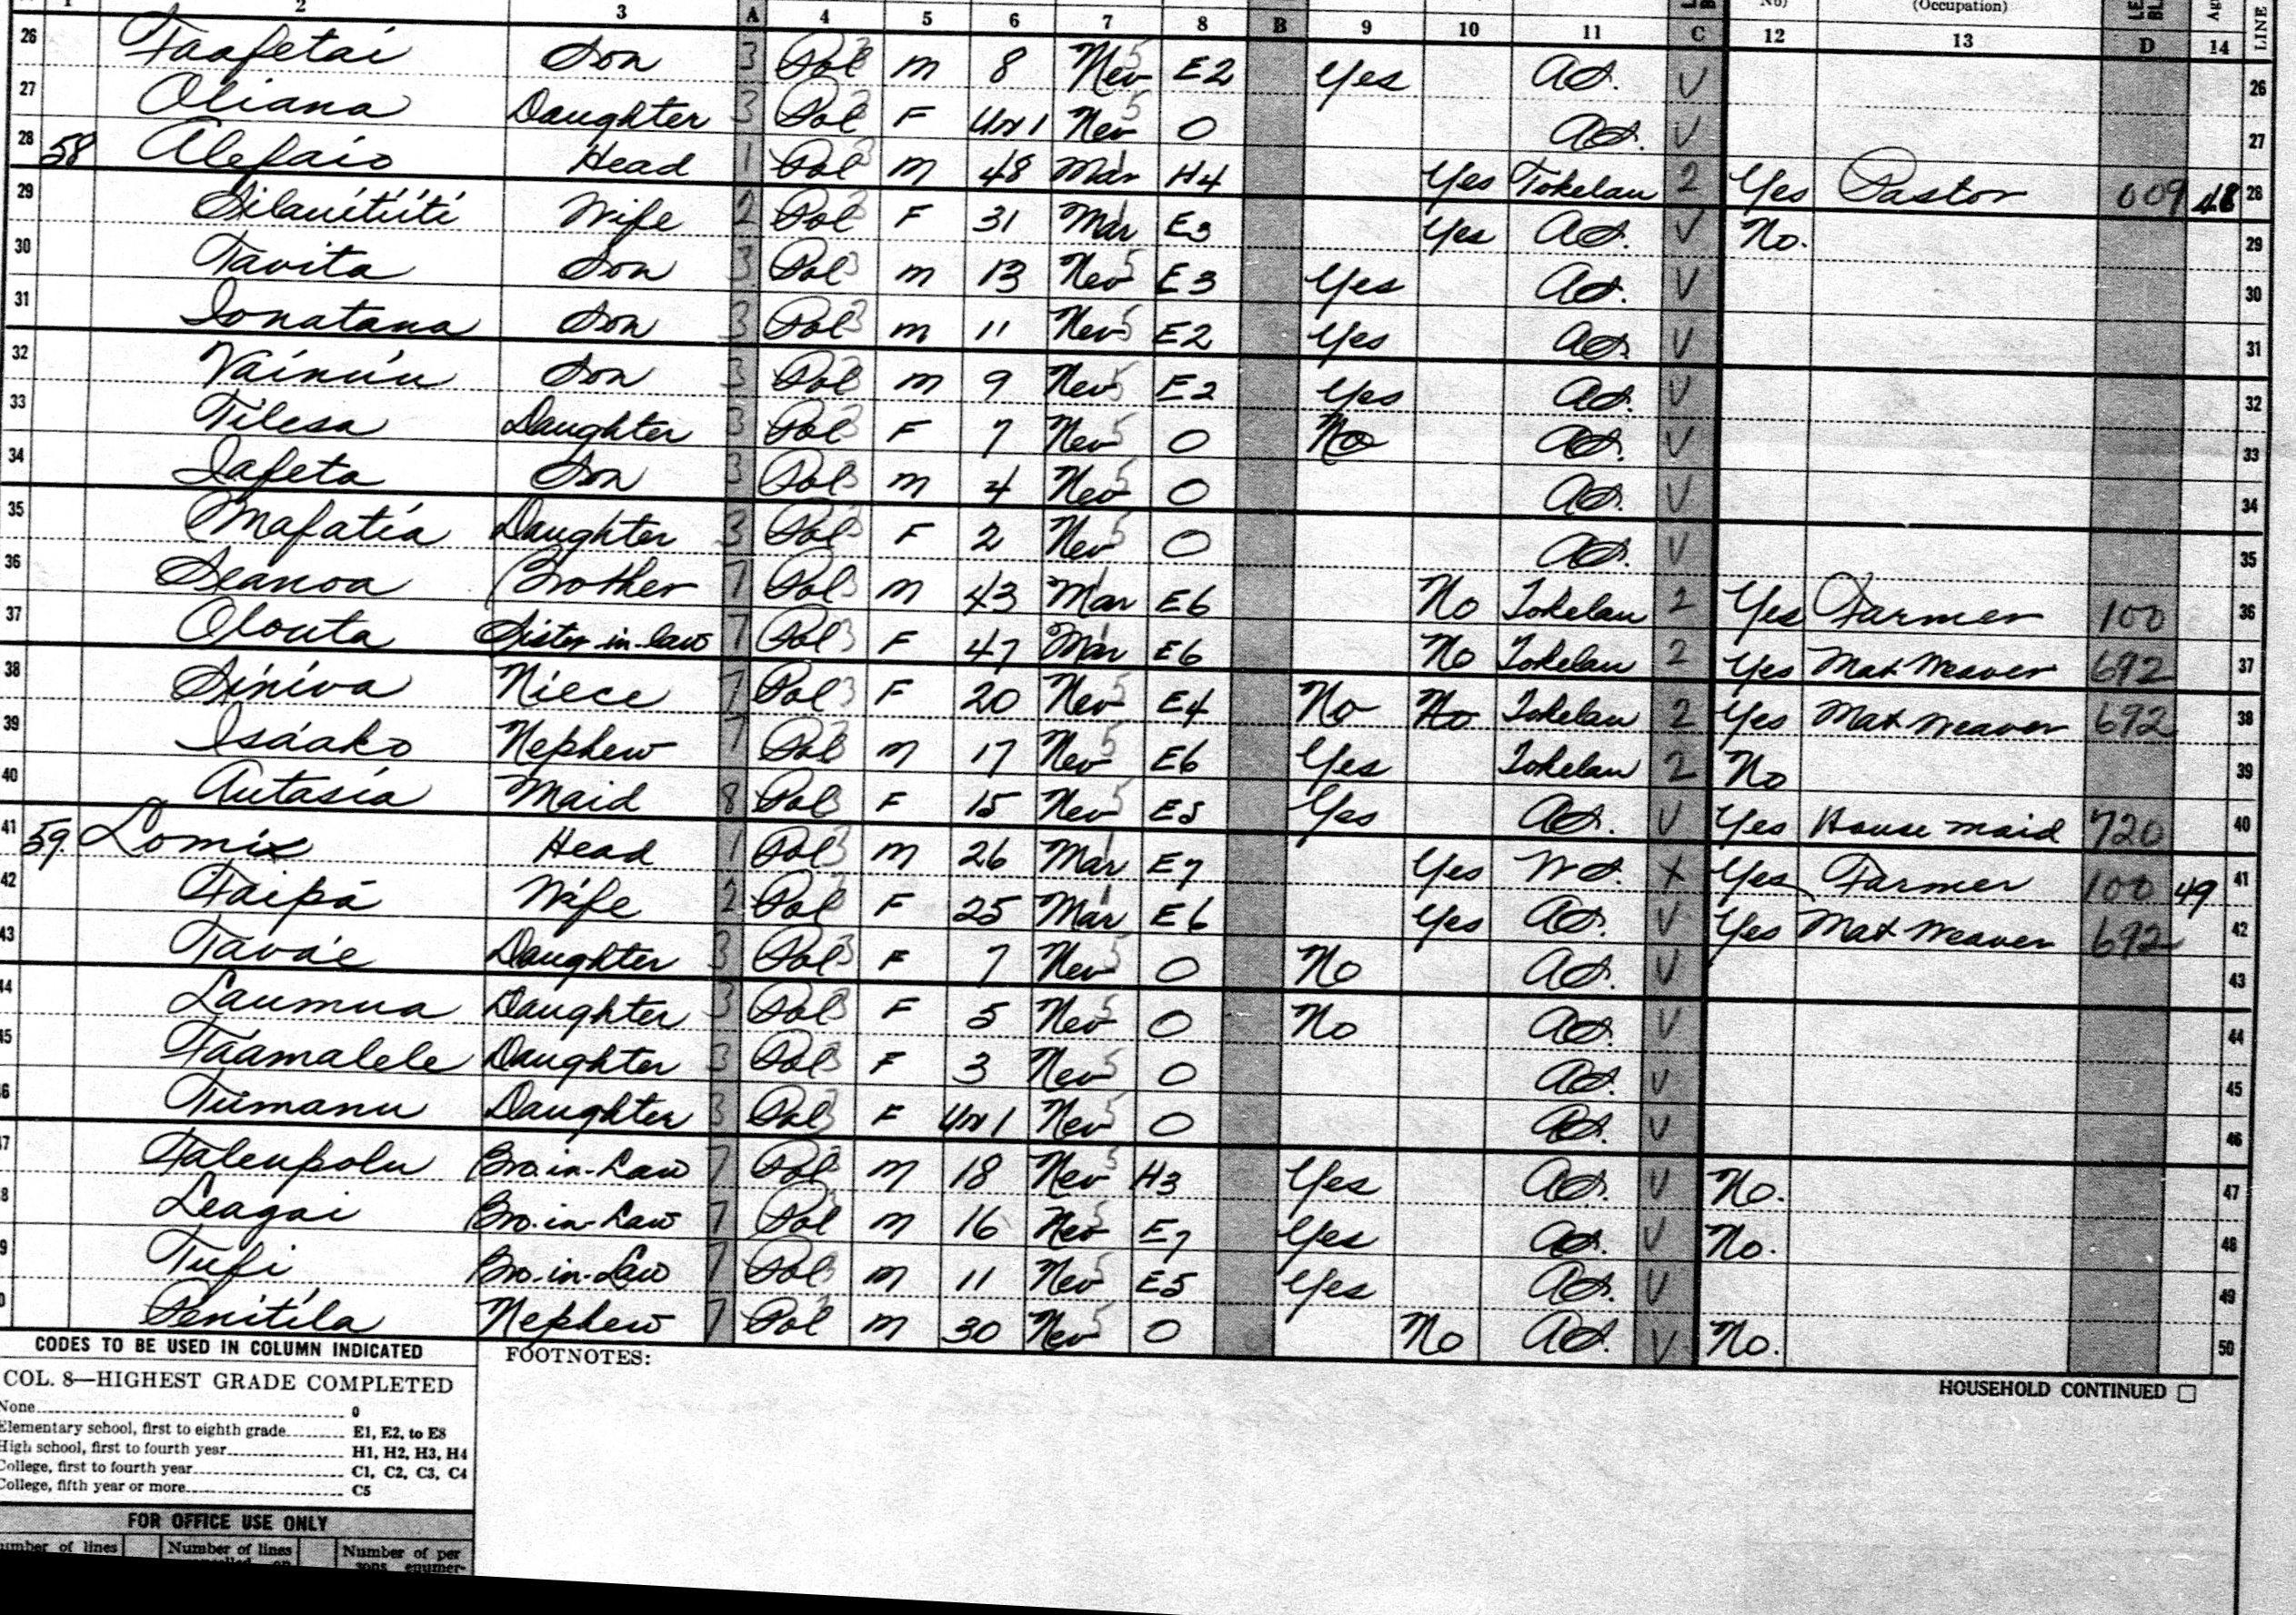 1 2 3 A 4 5 6 7 8 B 9 10 11 C 12 (Occupation) 13 D 14 LINE
26 Faafetai Son 3 Pol 3 M 8 Nev 5 E2 Yes A.S. V 26
27 Oliana Daughter 3 Pol 3 F Un 1 Nev 5 0 A.S. V 27
28 58 Alefaio Head 1 Pol 3 M 48 Mar 1 H4 Yes Tokelau 2 Yes Pastor 009 48 28
29 Silauitiiti Wife 2 Pol 3 F 31 Mar 1 E3 Yes A.S. V No. 29
30 Tavita Son 3 Pol 3 M 13 Nev 5 E3 Yes A.S. V 30
31 Ionatana Son 3 Pol 3 M 11 Nev 5 E2 Yes A.S. V 31
32 Vainuu Son 3 Pol 3 M 9 Nev 5 E2 Yes A.S. V 32
33 Tilesa Daughter 3 Pol 3 F 7 Nev 5 0 No A.S. V 33
34 Iafeta Son 3 Pol 3 M 4 Nev 5 0 A.S. V 34
35 Mafatia Daughter 3 Pol 3 F 2 Nev 5 0 A.S. V 35
36 Seanoa Brother 7 Pol 3 M 43 Mar 1 E6 No Tokelau 2 Yes Farmer 100 36
37 Olouta Sister-in-law 7 Pol 3 F 47 Mar 1 E6 No Tokelau 2 Yes Mat Weaver 692 37
38 Siniva Niece 7 Pol 3 F 20 Nev 5 E4 No No Tokelau 2 Yes Mat Weaver 692 38
39 Isaako Nephew 7 Pol 3 M 17 Nev 5 E6 Yes Tokelau 2 No 39
40 Autasia Maid 8 Pol 3 F 15 Nev 5 E5 Yes A.S. V Yes House maid 720 40
41 59 Lomix Head 1 Pol 3 M 26 Mar 1 E7 Yes W.S. X Yes Farmer 100 49 41
42 Faipa Wife 2 Pol 3 F 25 Mar 1 E6 Yes A.S. V Yes Mat Weaver 692 42
43 Tavae Daughter 3 Pol 3 F 7 Nev 5 0 No A.S. V 43
44 Laumua Daughter 3 Pol 3 F 5 Nev 5 0 No A.S. V 44
45 Faamalele Daughter 3 Pol 3 F 3 Nev 5 0 A.S. V 45
46 Tumanu Daughter 3 Pol 3 F Un 1 Nev 5 0 A.S. V 46
47 Faleupolu Bro.in-Law 7 Pol 3 M 18 Nev 5 H3 Yes A.S. V No. 47
48 Leagai Bro.in-Law 7 Pol 3 M 16 Nev 5 E7 Yes A.S. V No. 48
49 Tufi Bro-in-Law 7 Pol 3 M 11 Nev 5 E5 Yes A.S. V 49
Penitila Nephew 7 Pol 3 M 30 Nev 5 0 No A.S. V No. 50
CODES TO BE USED IN COLUMN INDICATED
FOOTNOTES:
COL. 8—HIGHEST GRADE COMPLETED
HOUSEHOLD CONTINUED
None 0
Elementary school, first to eighth grade E1, E2, to E8
High school, first to fourth year H1, H2, H3, H4
College, first to fourth year C1, C2, C3, C4
College, fifth year or more C5
FOR OFFICE USE ONLY
Number of lines Number of lines Number of per
cancelled on sons enumer-